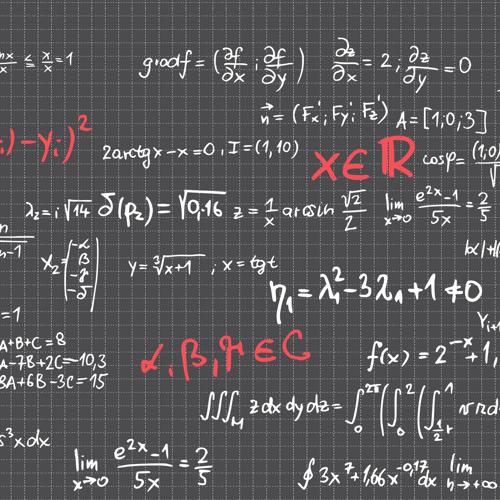 ≤ x/x = 1
gradf = (∂f/∂x ; ∂f/∂y)
∂z/∂x = 2 ; ∂z/∂y = 0
n⃗ = (Fx'; Fy'; Fz')
A = [1;0;3]
) - yi)²
2arctgx - x = 0 , I = (1, 10)
x ∈ ℝ
cosφ = (1,0)
λ₂ = i√14
δ(ρ₂) = √0,16
z = 1/x arcsin √2/2
lim x→0 e^2x - 1 / 5x = 2/5
x₂ = (-α β -γ -δ)
y = ∛x+1 ; x = tgt
η₁ = λ₁² - 3λ₁ + 1 ≠ 0
= 1
A+B+C = 8
A - 7B + 2C = -10,3
8A + 6B - 3C = 15
α, β, γ ∈ C
f(x) = 2^-x + 1,
∭M z dx dy dz = ∫₀^2π (∫₀² (∫
s³xdx
lim x→0 e^2x - 1 / 5x = 2/5
∮ 3x⁷ + 1,66x^-0,17 dx
lim n→+∞